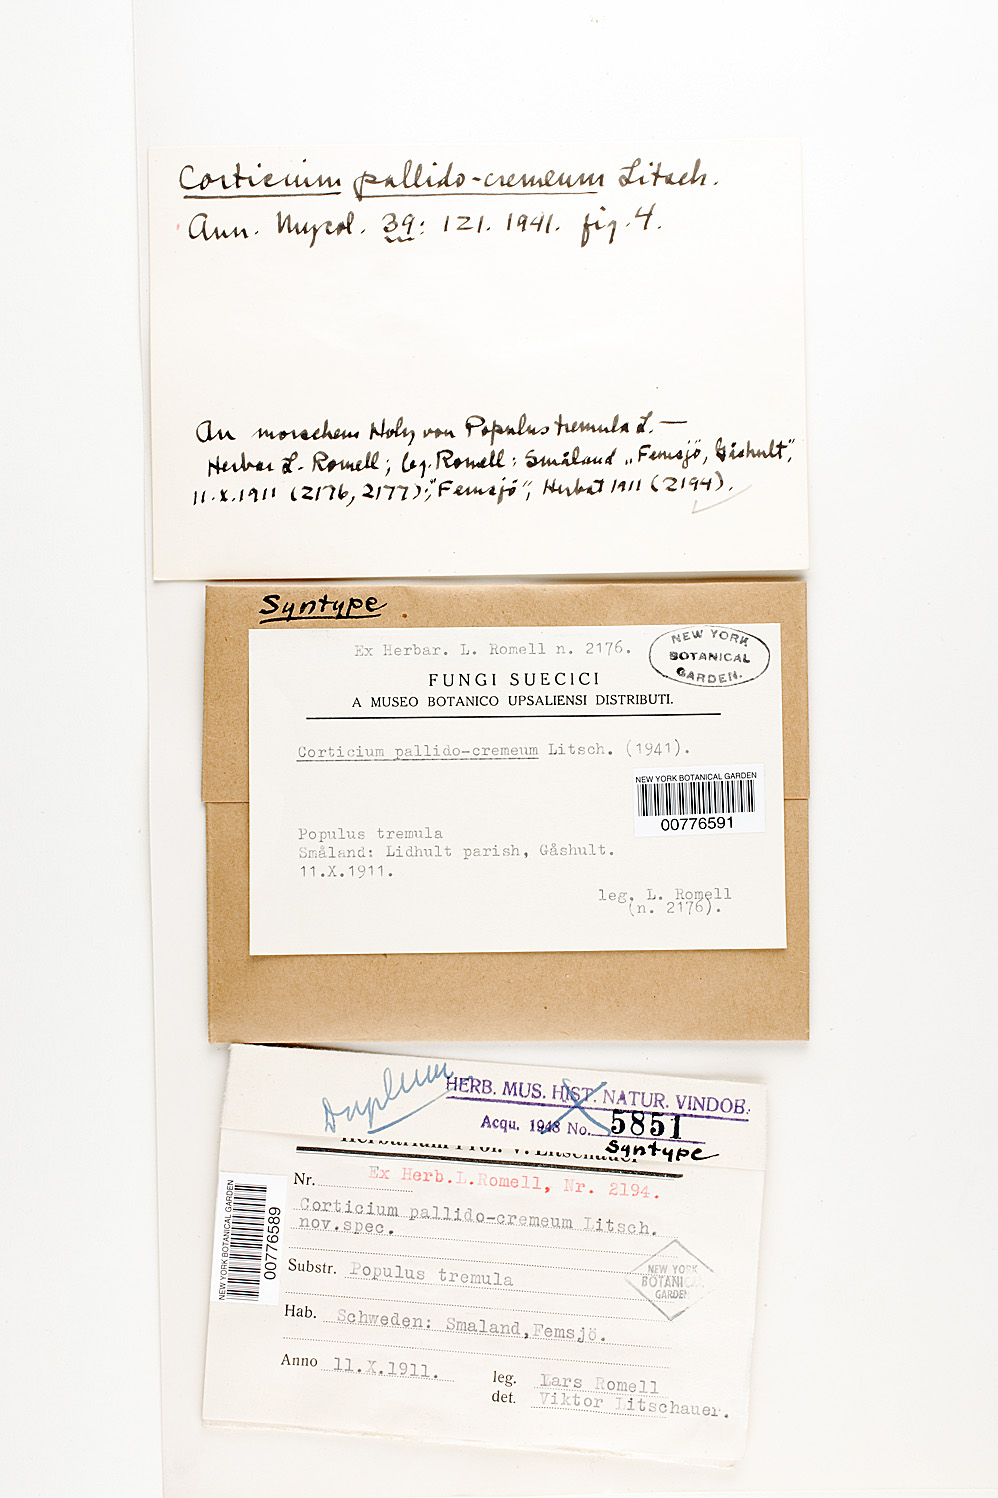 Corticium pallido-cremeum Litsch.
Ann. Mycol. 39: 121. 1941. fig. 4.
An morschem Holz von Populus tremula L. —
Herbar L. Romell; leg. Romell: Småland „Femsjö, Gåshult",
11.X.1911 (2176, 2177); "Femsjö", Herbst 1911 (2194).
Syntype
Ex Herbar. L. Romell n. 2176.
NEW YORK
BOTANICAL
GARDEN.
FUNGI SUECICI
A MUSEO BOTANICO UPSALIENSI DISTRIBUTI.
Corticium pallido-cremeum Litsch. (1941).
NEW YORK BOTANICAL GARDEN
00776591
Populus tremula
Småland: Lidhult parish, Gåshult.
11.X.1911.
leg. L. Romell
(n. 2176).
HERB. MUS. HIST. NATUR. VINDOB.
Acqu. 1948 No. 5851
Syntype
Herbarium Prof. V. Litschauer
Nr. Ex Herb.L.Romell, Nr. 2194.
Corticium pallido-cremeum Litsch.
nov.spec.
Substr. Populus tremula
NEW YORK
BOTANICAL
GARDEN
Hab. Schweden: Smaland,Femsjö.
Anno 11.X.1911.
leg. Lars Romell
det. Viktor Litschauer.
NEW YORK BOTANICAL GARDEN
00776589